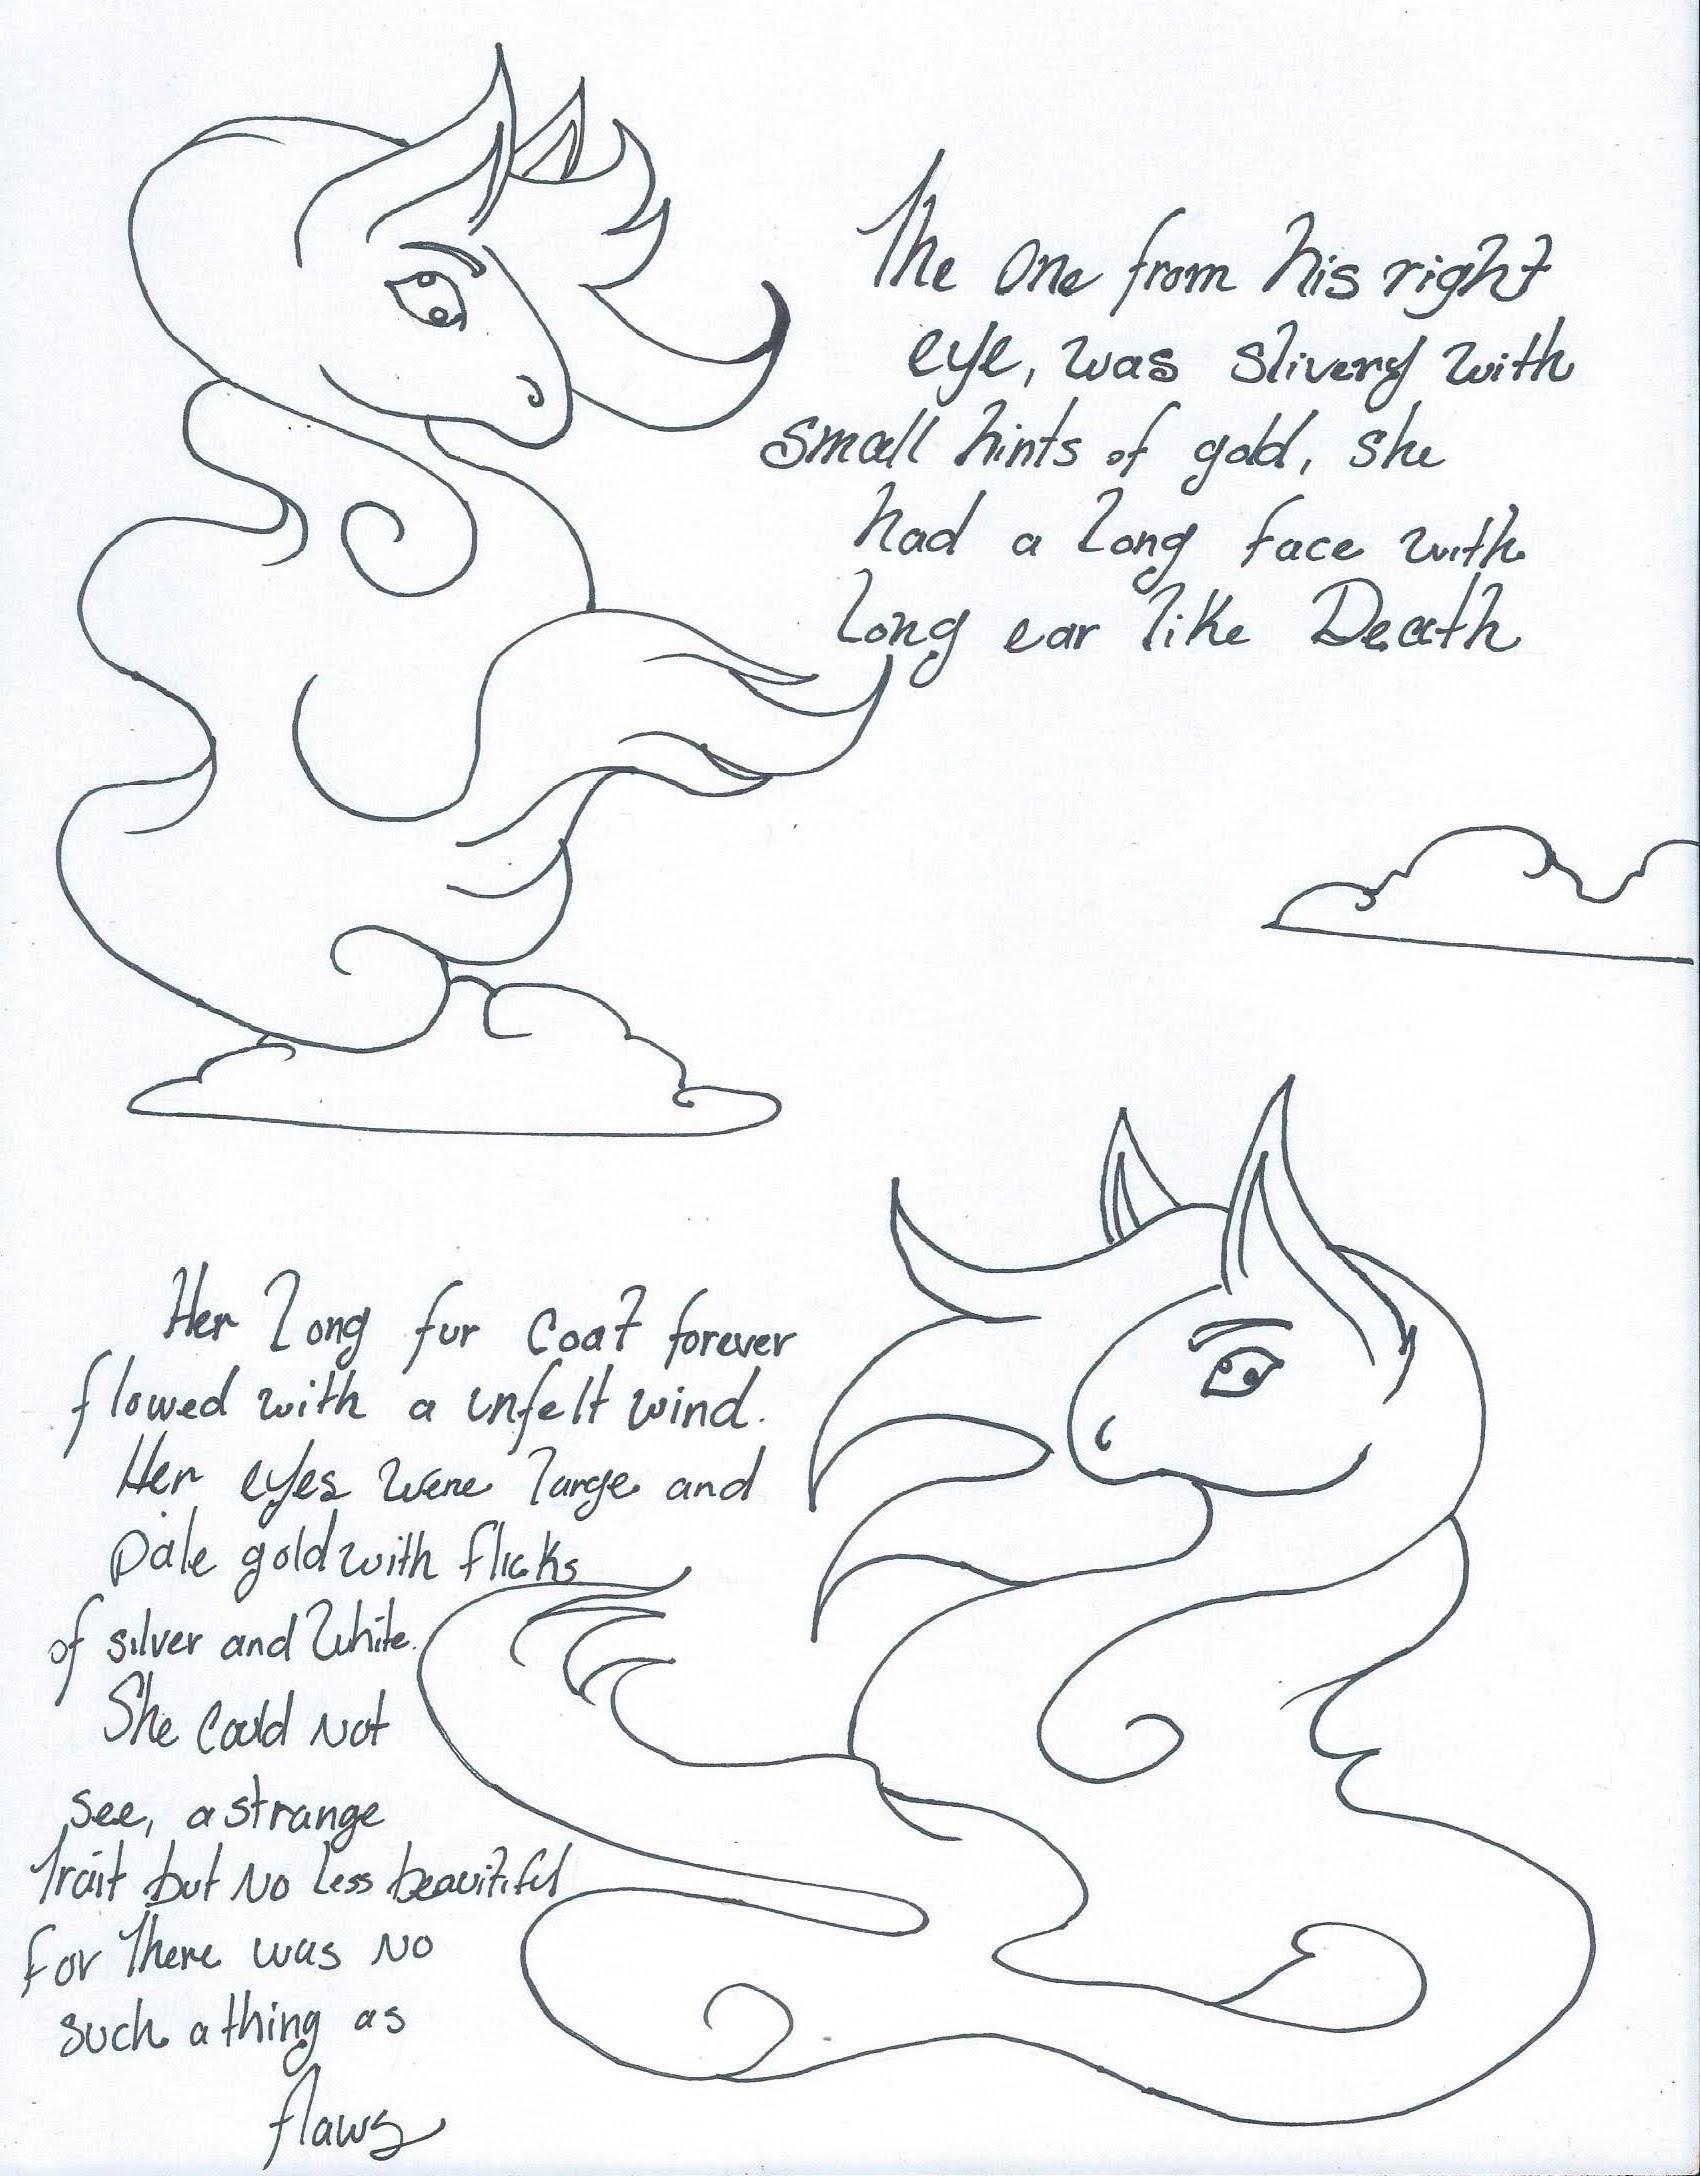 The one from his right
eye, was slivery with
small hints of gold, she
had a long face with
long ear like Death
Her long fur coat forever
flowed with a unfelt wind.
Her eyes were large and
pale gold with flicks
of silver and white.
She could not
see, a strange
trait but no less beautiful
for there was no
such a thing as
flaws